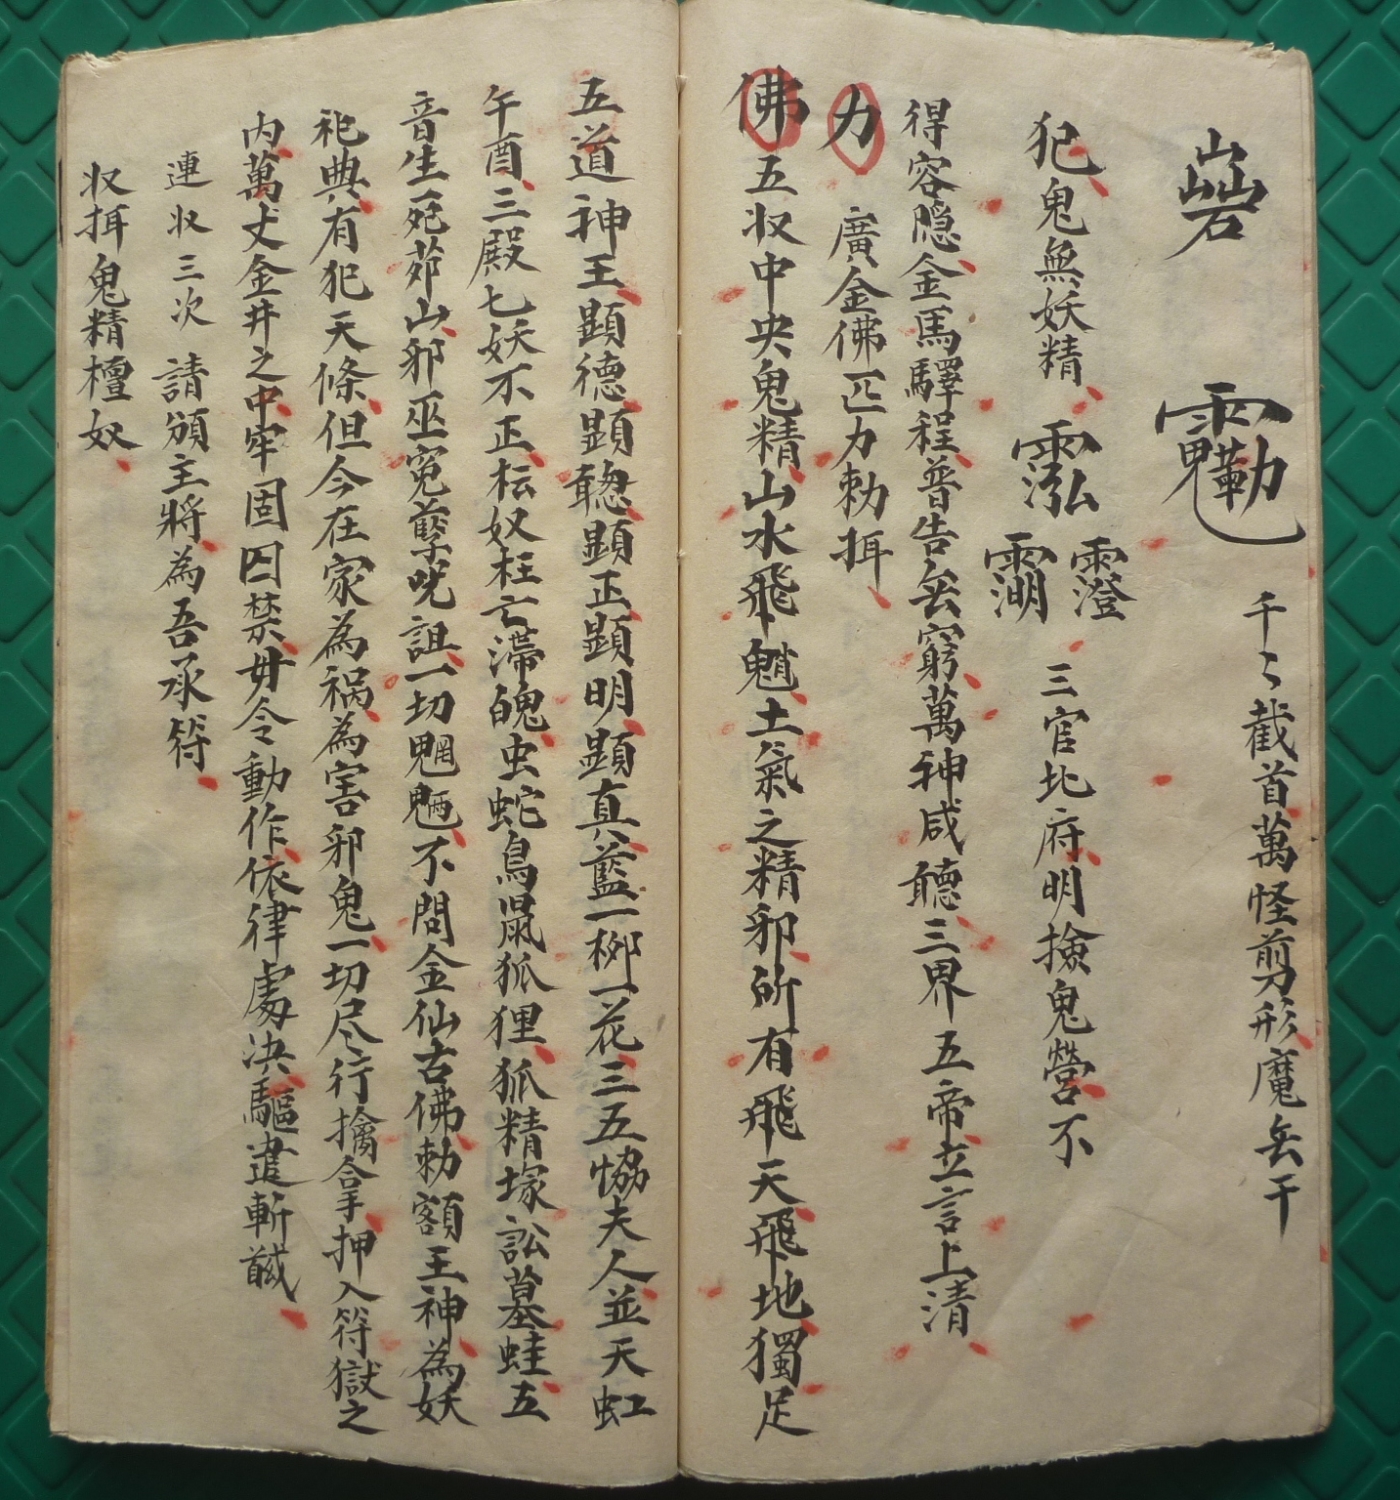 千〻截首萬怪剪形魔兵千
犯鬼無妖精
三官北府明撿鬼營不
得容隠金馬驛程普告兵窮萬神咸聽三界五帝立言上清
力 廣金佛匹力勅挕
佛五収中央鬼精山水飛魈土氣之精邪所有飛天飛地獨足
五道神王顕德顕聰顕正顕明顕真藍一柳一花三五恊夫人並天虹
午酉三殿七妖不正枟奴枉亡滯魄虫蛇鳥鼠狐狸狐精塚訟墓蛙五
音生茆山邪巫寃孽咒詛一切魍魎不問金仙古佛勅額王神為妖
祀典有犯天條但今在家為禍為害邪鬼一切尽行擒拿押入符獄之
内萬丈金井之中牢固囚禁毋令動作依律處决驅遣斬馘
連収三次 請頒主將為吾承符
収挕鬼精檀奴